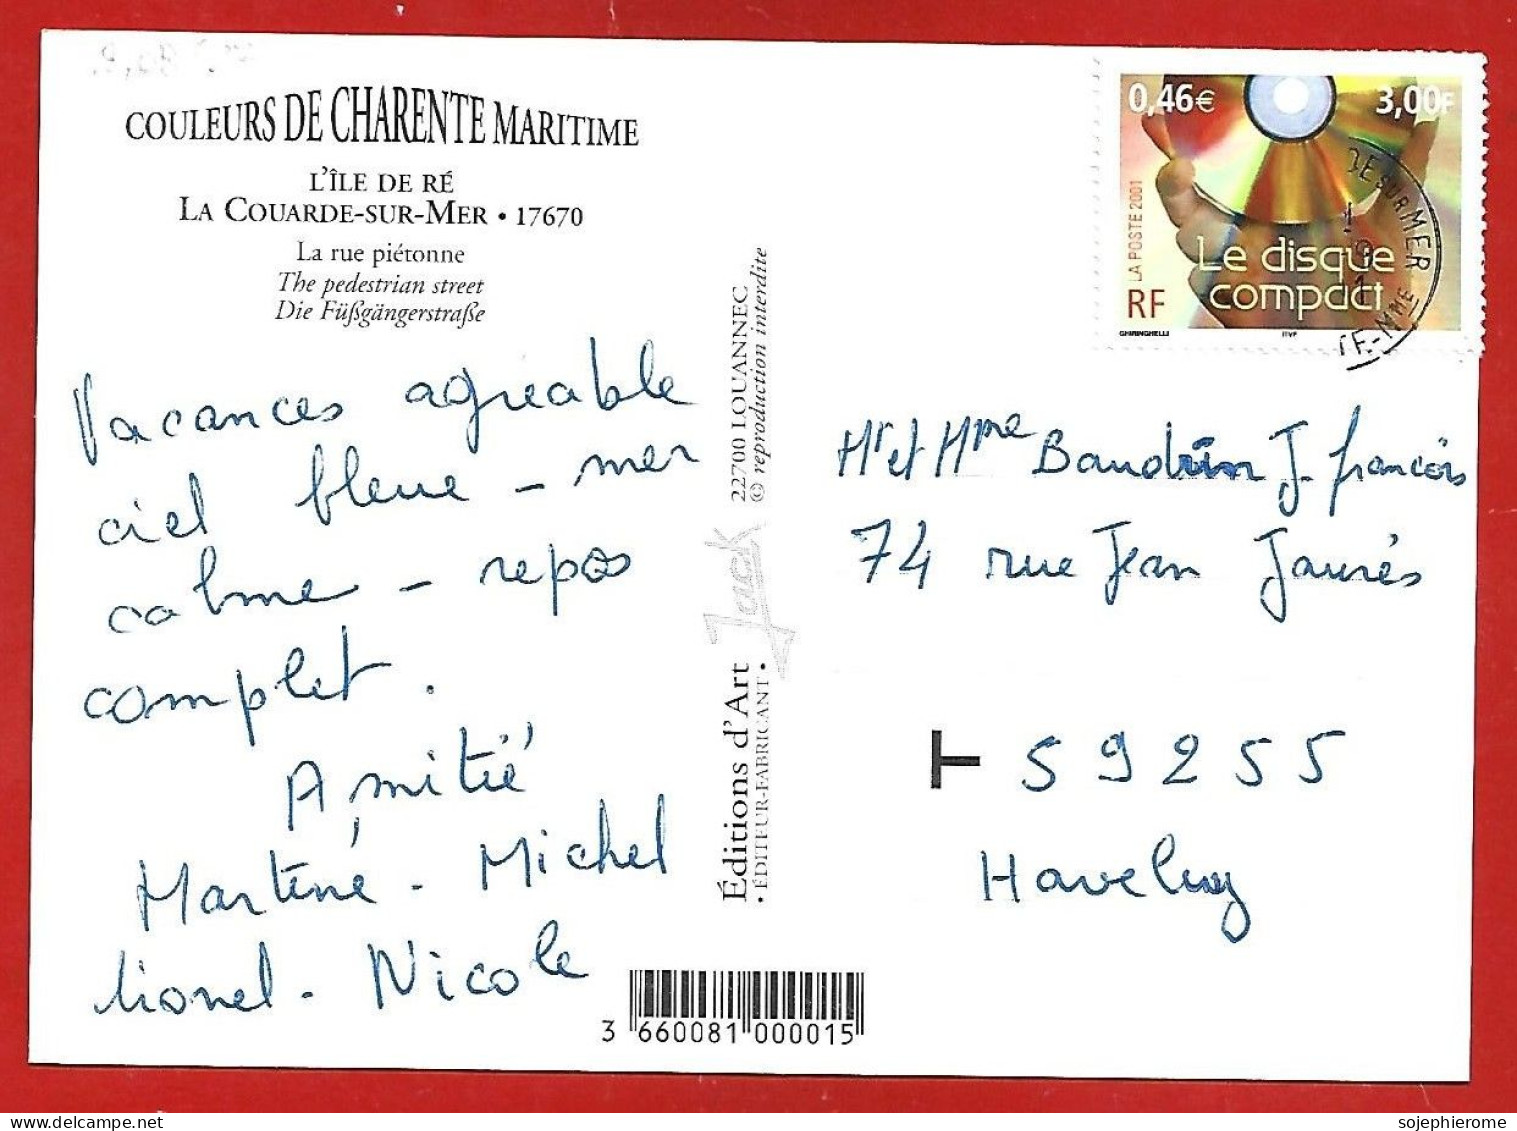 COULEURS DE CHARENTE MARITIME
L'ÎLE DE RÉ
LA COUARDE-SUR-MER • 17670
La rue piétonne
The pedestrian street
Die Füßgängerstraße
Vacances agréable
ciel bleue - mer
calme - repos
complet.
Amitié
Martine - Michel
lionel - Nicole
Éditions d'Art Jack
• ÉDITEUR-FABRICANT •
22700 LOUANNEC
© reproduction interdite
3 660081 000015
0,46€ 3,00F
LA POSTE 2001
Le disque
compact
RF
GHIRINGHELLI ITVF
DE SUR MER
TE-Mme
Mr et Mme Baudrin J. françois
74 rue Jean Jaurès
T 59255
Haveluy
sojephierome